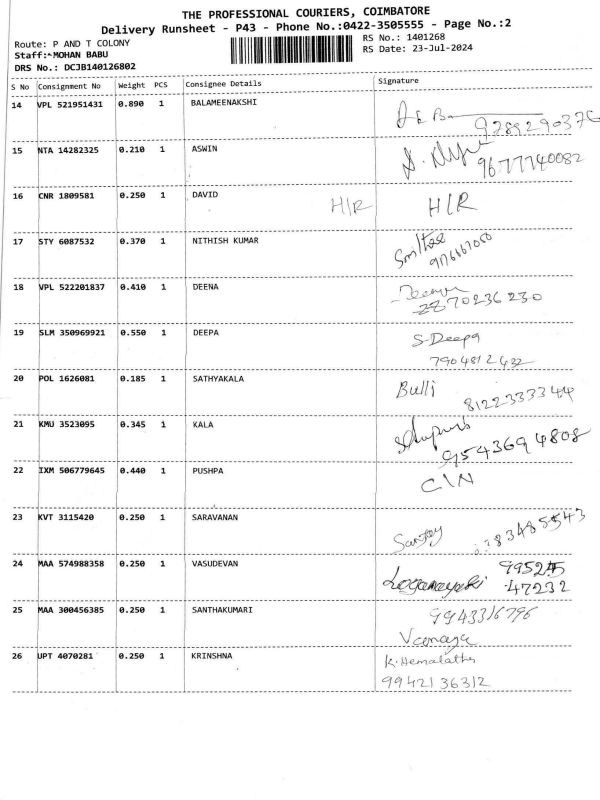 THE PROFESSIONAL COURIERS, COIMBATORE
Delivery Runsheet - P43 - Phone No.:0422-3505555 - Page No.:2
Route: P AND T COLONY
RS No.: 1401268
Staff: MOHAN BABU
RS Date: 23-Jul-2024
DRS No.: DCJB140126802
S No Consignment No Weight PCS Consignee Details Signature
14 VPL 521951431 0.890 1 BALAMEENAKSHI
9289290376
15 NTA 14282325 0.210 1 ASWIN
9677740082
16 CNR 1809581 0.250 1 DAVID H/R H/R
17 STY 6087532 0.370 1 NITHISH KUMAR
18 VPL 522201837 0.410 1 DEENA
70236230
19 SLM 350969921 0.550 1 DEEPA S-Deepa
7904812432
20 POL 1626081 0.185 1 SATHYAKALA Bulli
8122333344
21 KMU 3523095 0.345 1 KALA
9543694808
22 IXM 506779645 0.440 1 PUSHPA C/N
23 KVT 3115420 0.250 1 SARAVANAN
83485543
24 MAA 574988358 0.250 1 VASUDEVAN 995245
47232
25 MAA 300456385 0.250 1 SANTHAKUMARI 9943316796
26 UPT 4070281 0.250 1 KRINSHNA K.Hemalatha
9942136312